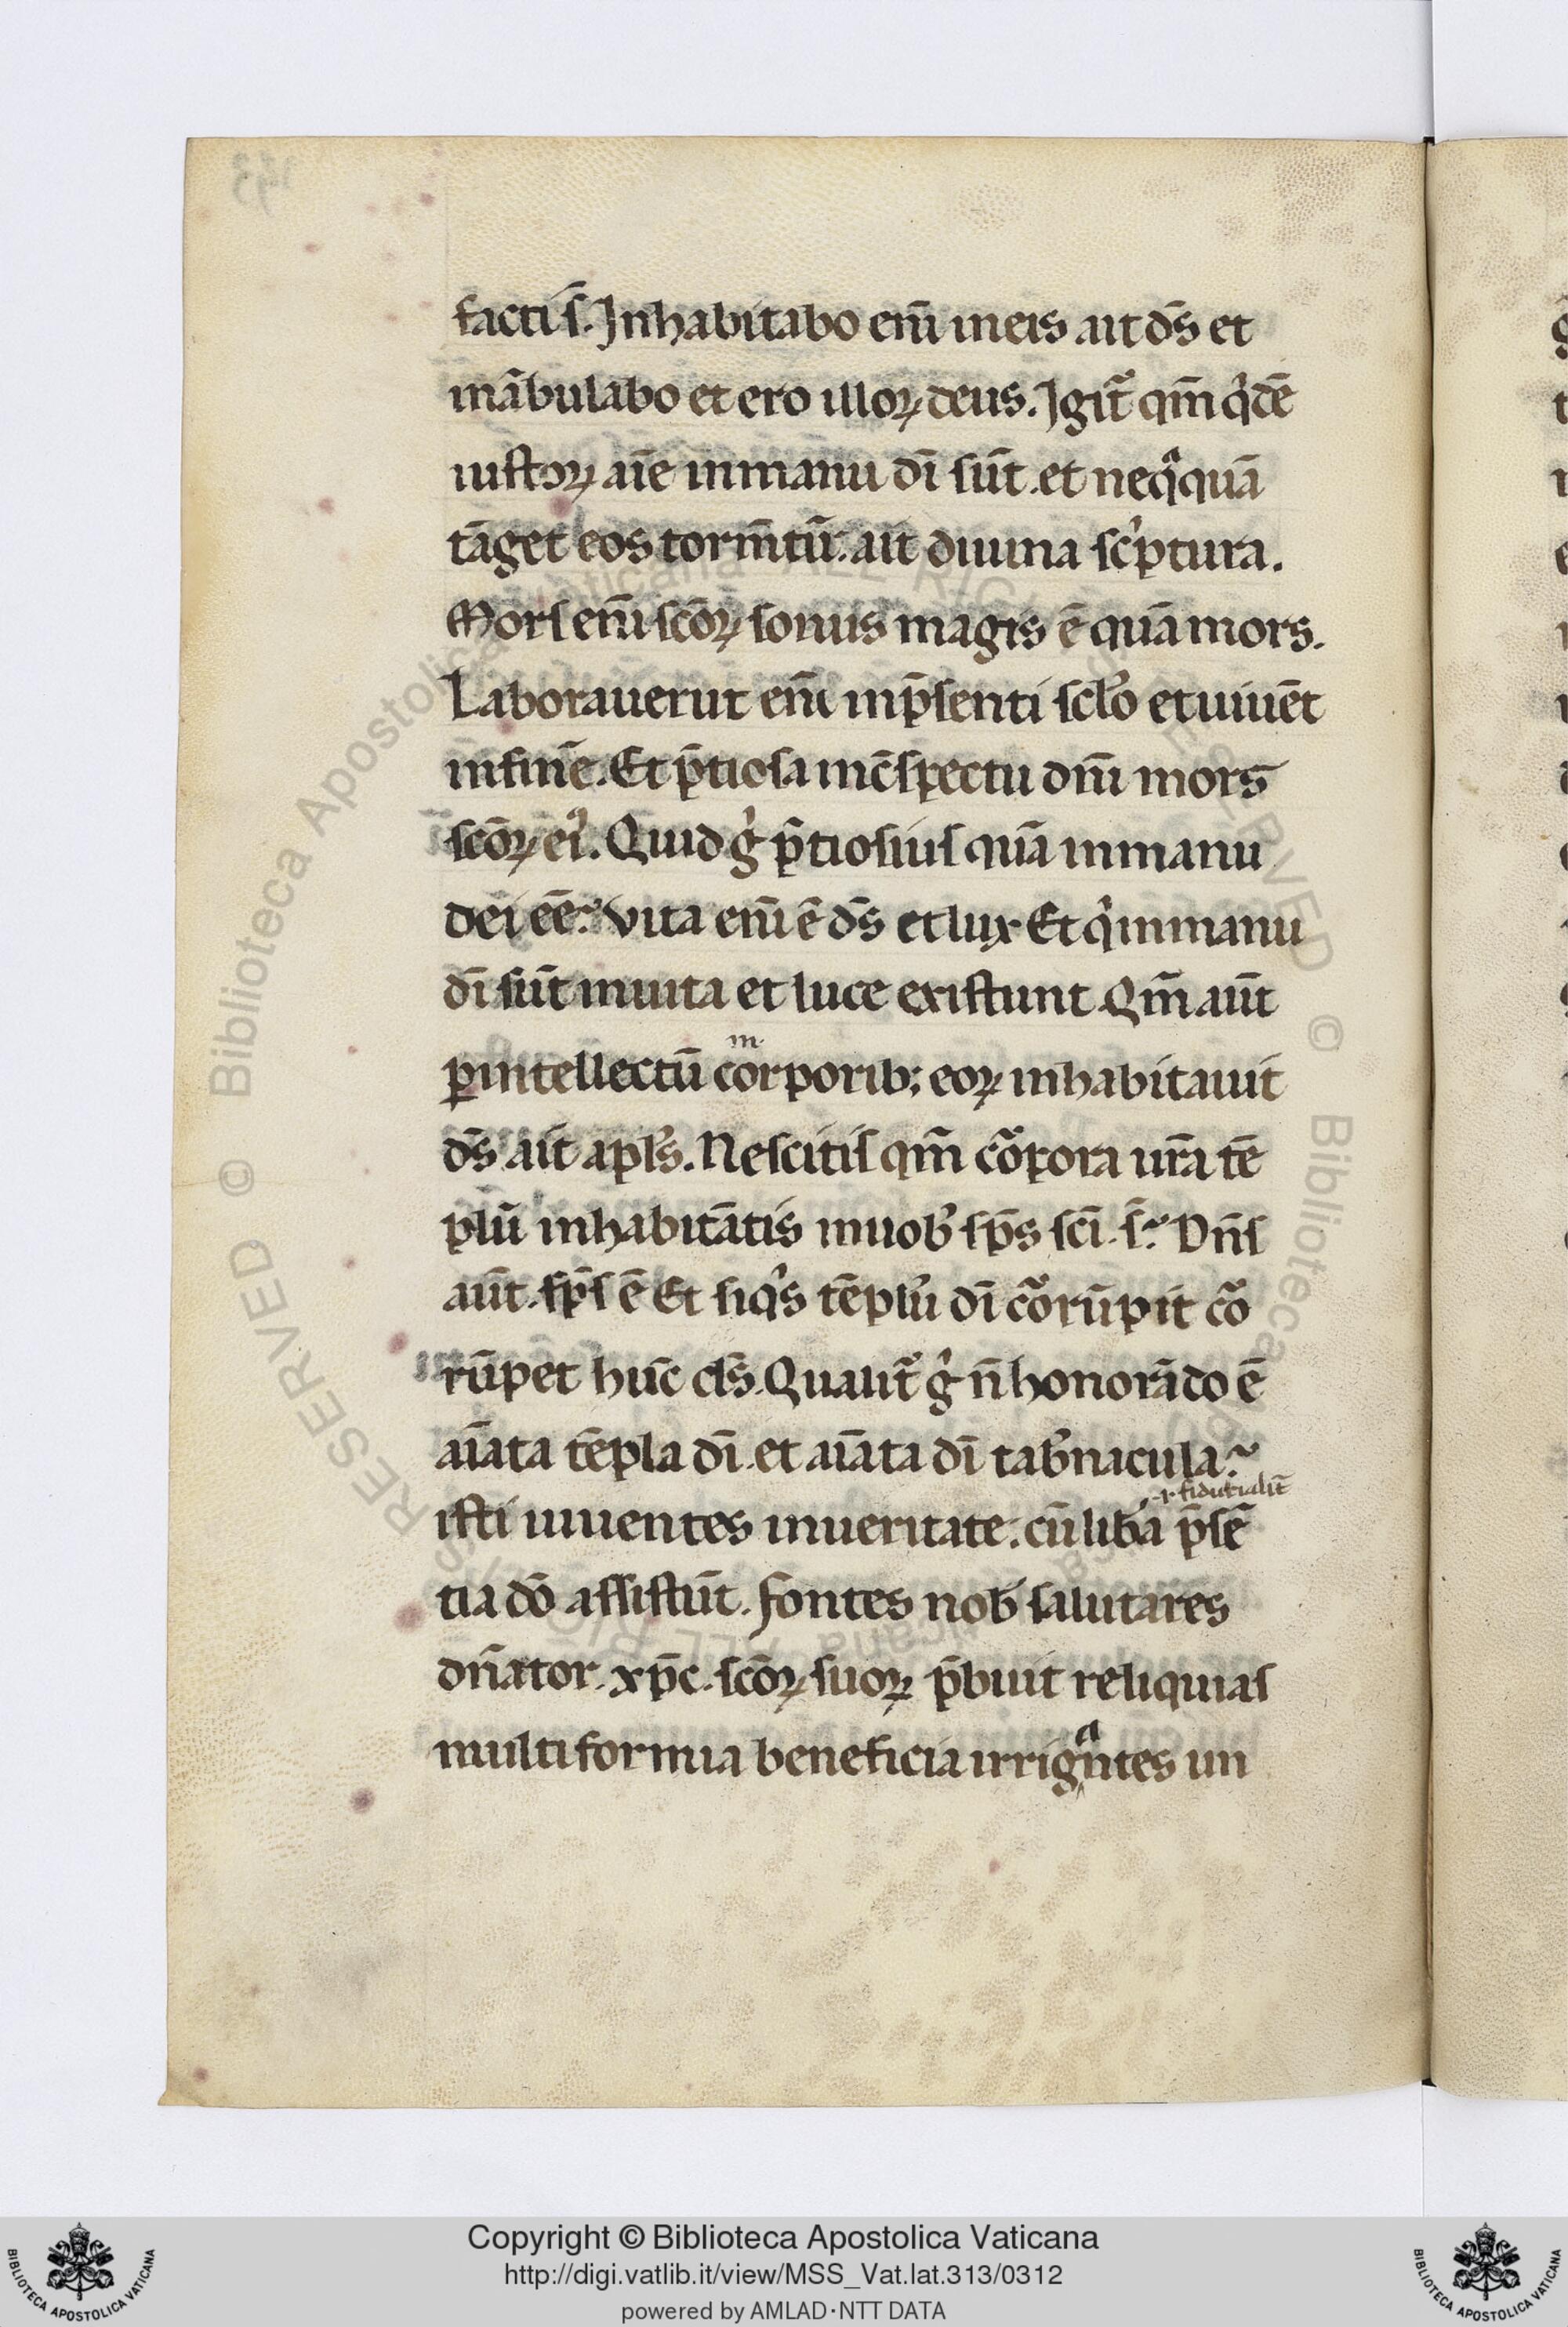 factis̄. Inhabitabo eni̅ ineis ait ds̄ et
inābulabo et ero illoꝝ deus. Igit̃ qm̄ qͥdē
iustoꝝ aīe inmanu dī sūt. et neqͣquā
tāget eos torm̄tū. ait diuina scͥptura.
Mors enī scōꝝ somnus magis ē quā mors.
Laborauerut enī inp̄senti scl̓o et uiuēt
infinē. Et p̄tiosa inc̄spectu dnī mors
scōꝝ ei᾿. Quid gͥ p̄tiosius quā inmanu
dei eē? Vita enī ē ds̄ et lux Et qͥ inmanu
dī sūt inuita et luce existunt Qm̄ aūt
ꝑintellectū in corporib; eoꝝ inhabitauit
ds̄ ait apl̓s. Nescitis qm̄ cͣorpora ur̄a tē
plū inhabitātis inuob̓ sp̄s scī. s̄? Dn̄s
aūt. sp̄s ē Et siqͥs tēplū dī cͣorūpit cͣo
rūpet huc̄ ds̄. Qualit̃ gͥ n̄ honorādo ē
aīata tēpla dī. et aīata dī tab̓nacula?
isti uiuentes inueritate. cū lib̓a ⁊ fidutialit̄ p̄sē
tia dō assistūt. fontes nob̓ salutares
dn̄ator. xp̄c. scōꝝ suoꝝ p̄buit reliquias
multiformia beneficia irrigantes un
Copyright © Biblioteca Apostolica Vaticana
http://digi.vatlib.it/view/MSS_Vat.lat.313/0312
powered by AMLAD·NTT DATA
BIBLIOTECA APOSTOLICA VATICANA
BIBLIOTECA APOSTOLICA VATICANA